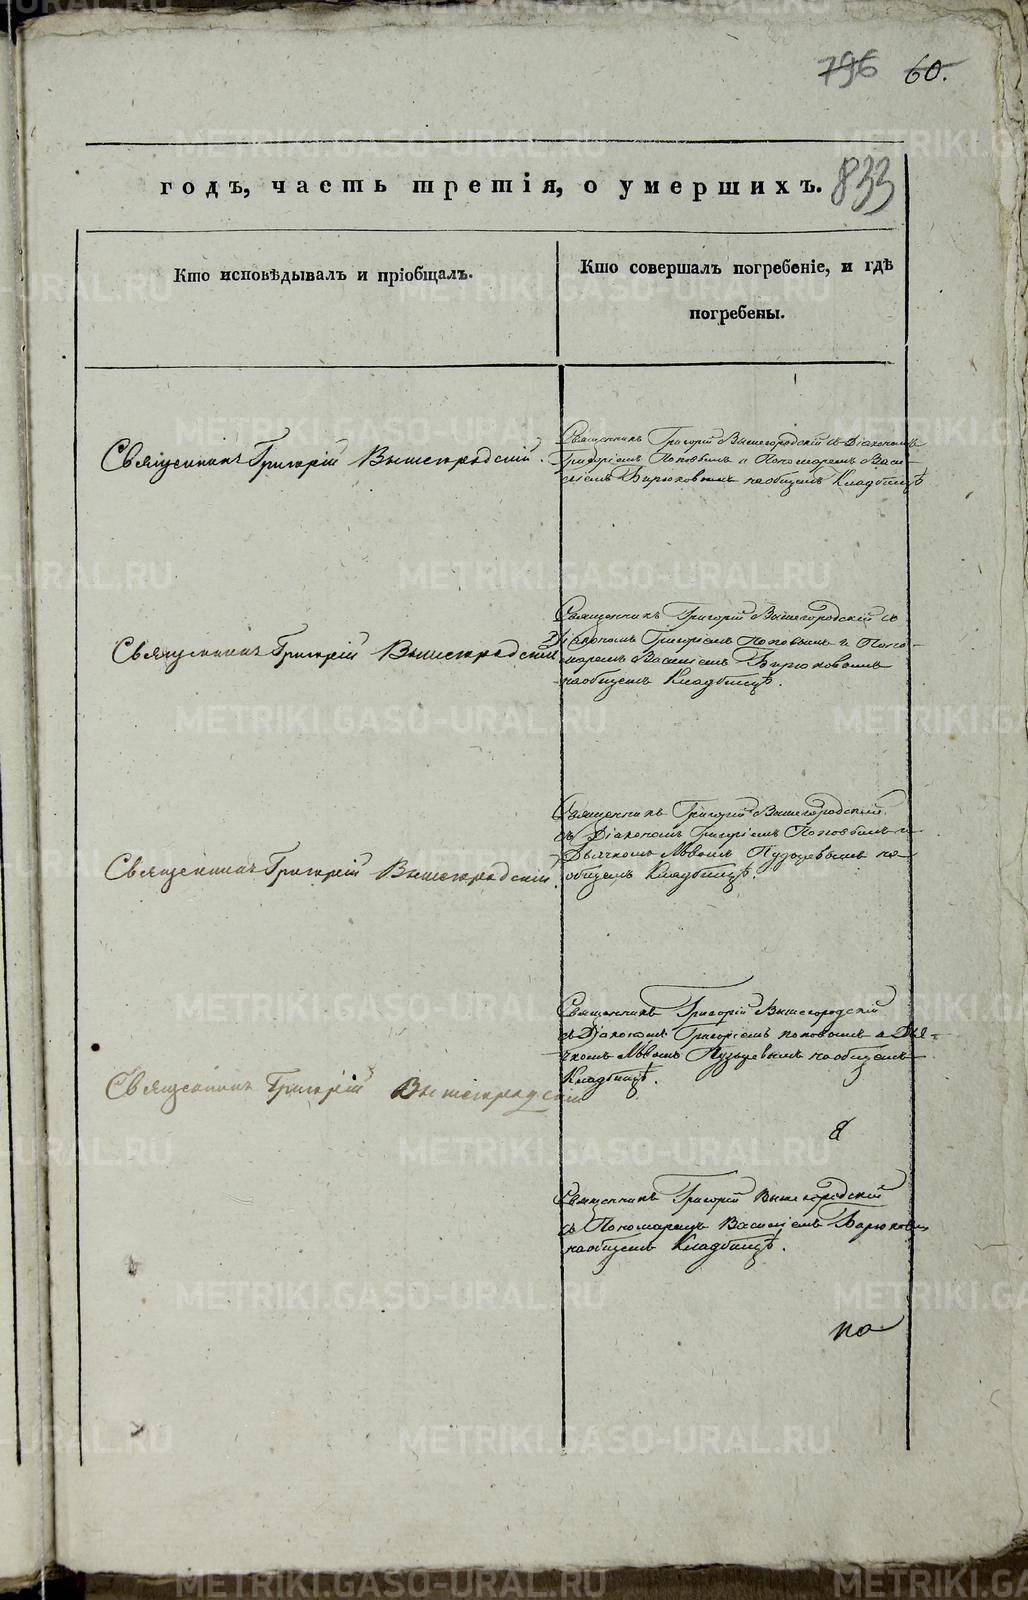 796 60.
833
годъ, часть третія, о умершихъ.
Кто исповѣдывалъ и пріобщалъ.
Кто совершалъ погребеніе, и гдѣ
погребены.
Священникъ Григорій Вышегородскій.
Священникъ Григорій Вышегородскій съ Діакономъ
Григоріемъ Поповымъ и Пономаремъ Васи-
ліемъ Бирюковымъ наобщемъ Кладбищѣ
Священникъ Григорій Вышегородскій
Священникъ Григорій Вышегородскій съ
Діакономъ Григоріемъ Поповымъ и Поно-
маремъ Василіемъ Бирюковымъ
наобщемъ Кладбищѣ.
Священникъ Григорій Вышегородскій.
Священникъ Григорій Вышегородскій
съ Діакономъ Григоріемъ Поповымъ и
Дьячкомъ Львомъ на
общемъ Кладбищѣ.
Священникъ Григорій Вышегородскій
Священникъ Григорій Вышегородскій
съ Діакономъ Григоріемъ поповымъ и Дья-
чкомъ Львомъ наобщемъ
Кладбищѣ.
Священникъ Григорій Вышегородскій
съ Пономаремъ Василіемъ
наобщемъ Кладбищѣ.
по
METRIKI.GASO-URAL.RU